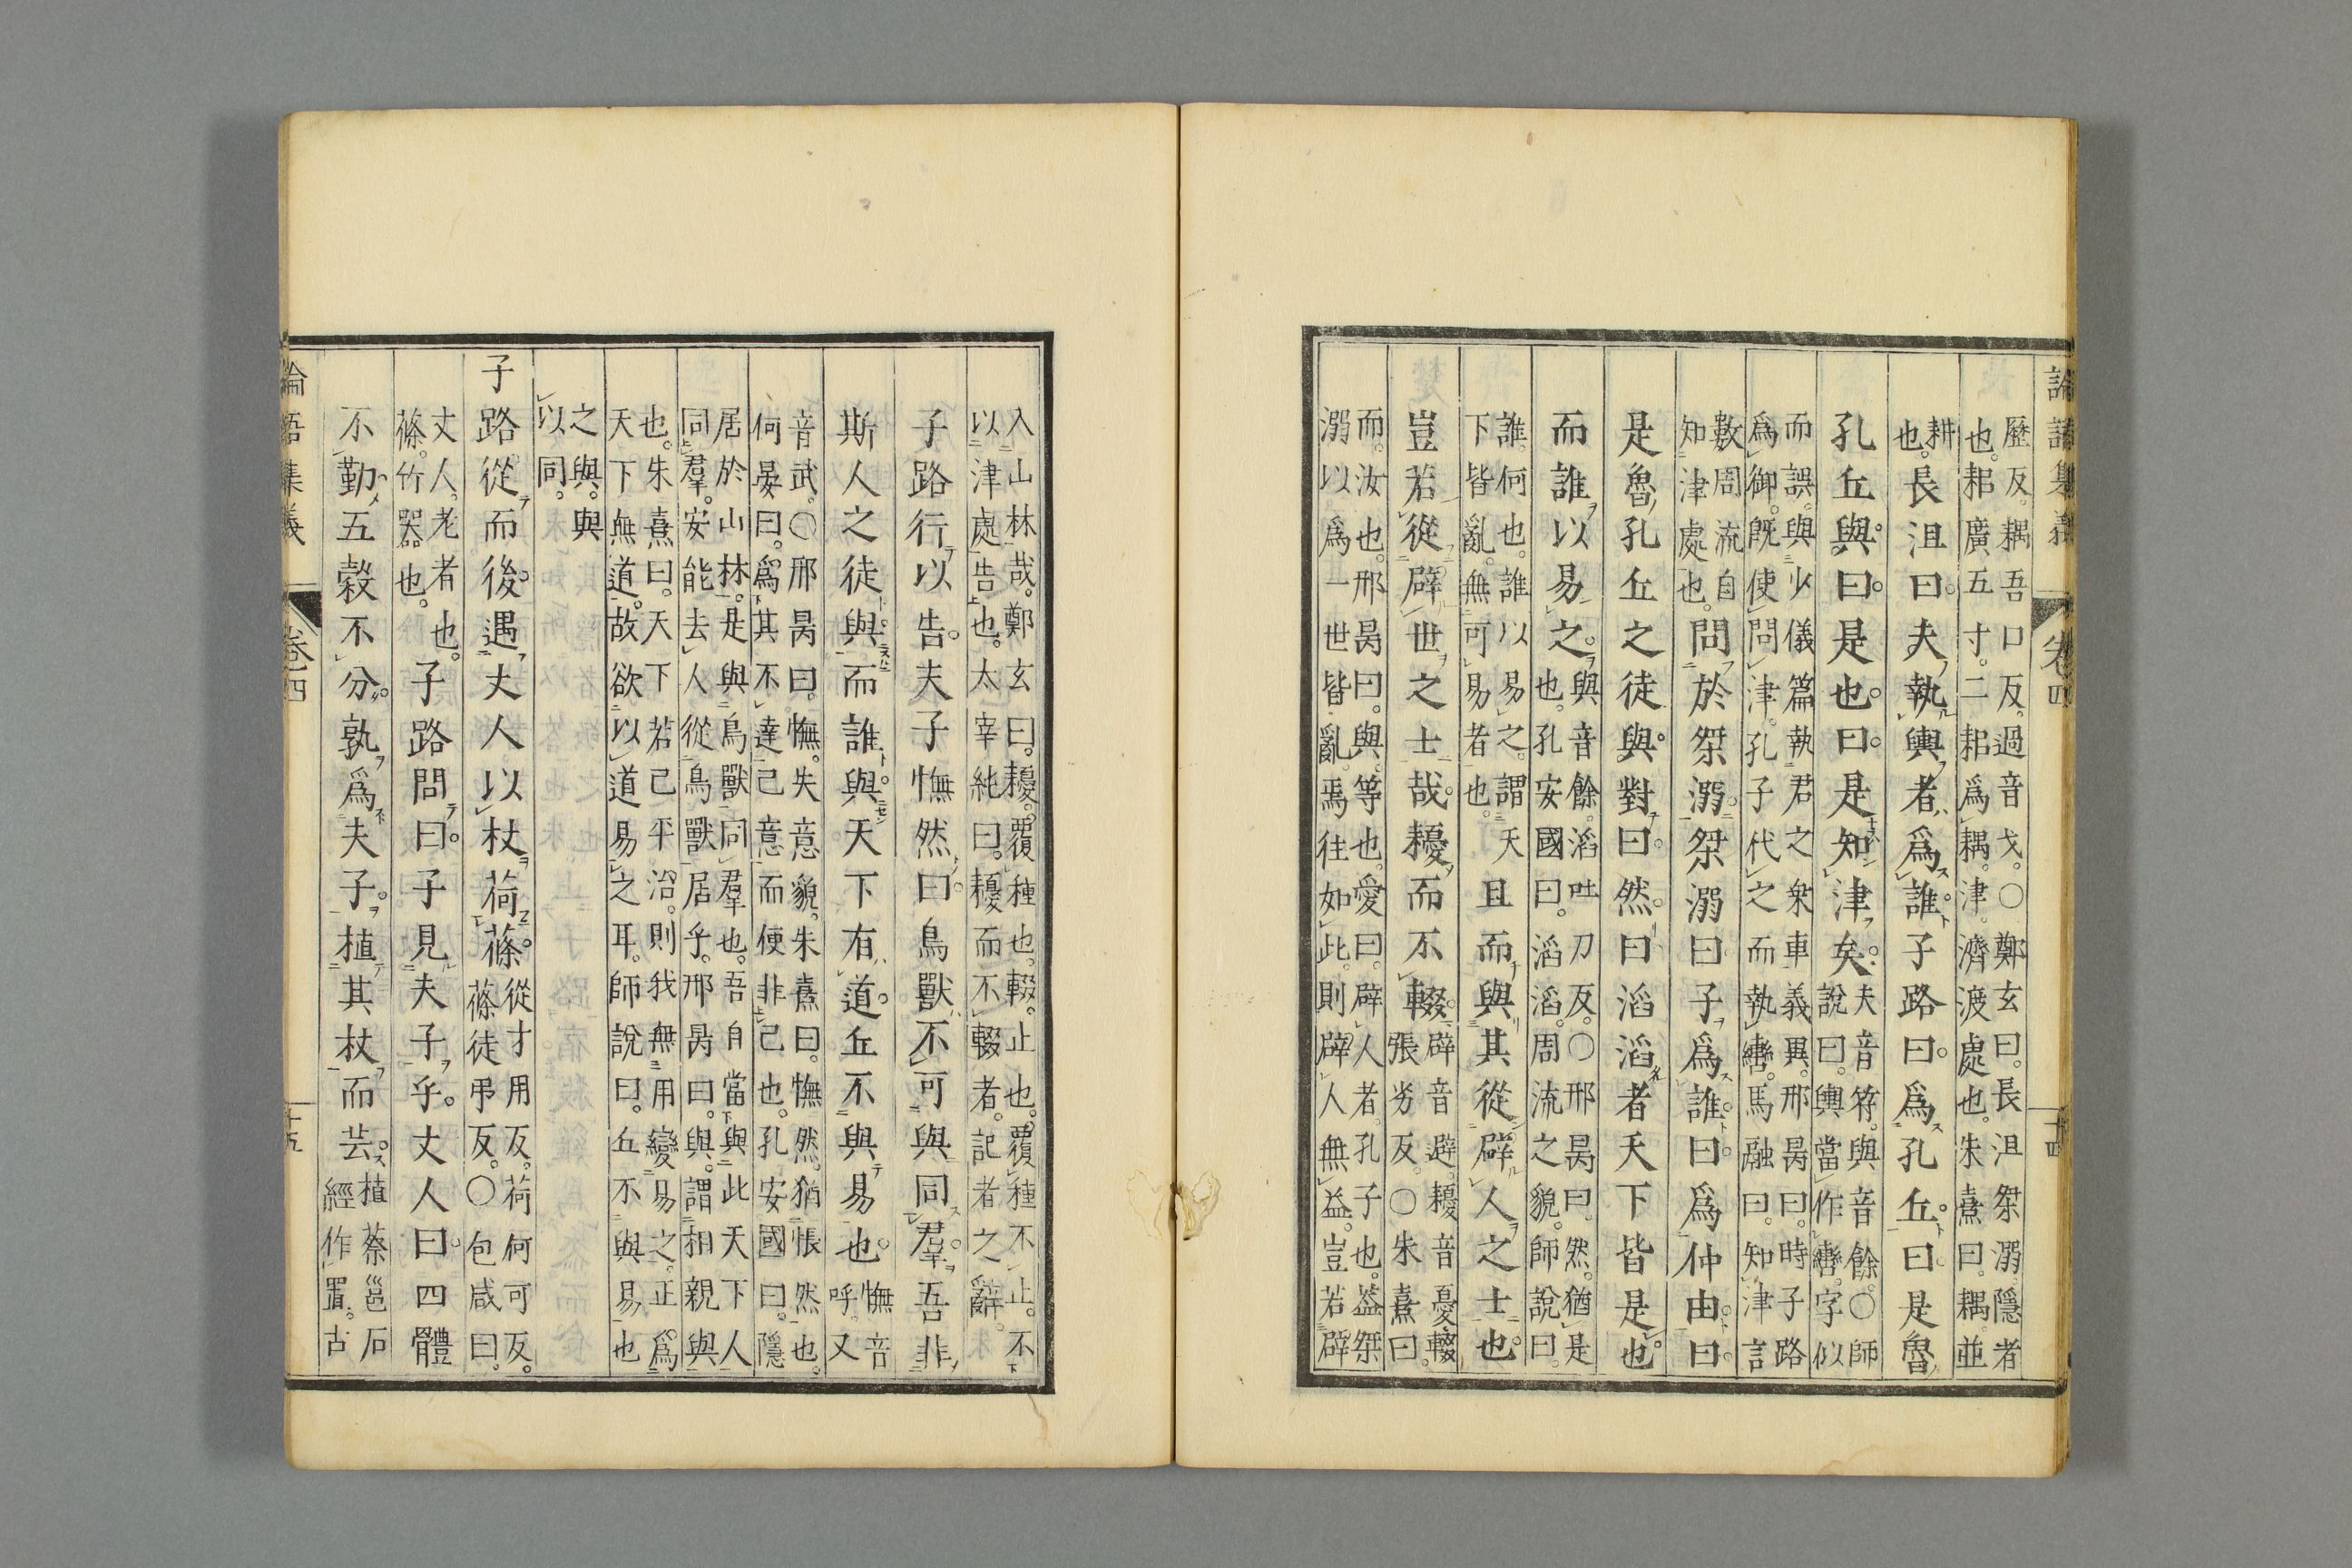 論語集義 卷四 十四
歷反。耦吾口反。過音戈。○鄭玄曰。長沮桀溺隱者
也。耜廣五寸。二耜爲耦。津。濟渡處也。朱熹曰。耦。並
耕
也。
長沮曰。夫執輿者。爲誰。子路曰。爲孔丘。曰。是魯
孔丘與。曰。是也。曰。是知津矣。
夫音符。與音餘。○師
說曰。輿當作轡。字似
而誤。與少儀篇執君之乘車義異。邢昺曰。時子路
爲御。旣使問津。孔子代之而執轡。馬融曰。知津言
數周流自
知津處也。
問於桀溺。桀溺曰。子爲誰。曰。爲仲由。曰。
是魯孔丘之徒與。對曰。然。曰滔滔者天下皆是也。
而誰以易之。
與音餘。滔吐刀反。○邢昺曰。然。猶是
也。孔安國曰。滔滔。周流之貌。師說曰。
誰。何也。誰以易之。謂天
下皆亂。無可易者也。
且而與其從辟人之士也。
豈若從辟世之士哉。耰而不輟。
辟音避。耰音憂。輟
張劣反。○朱熹曰。
而。汝也。邢昺曰。與。等也。愛曰。辟人者。孔子也。蓋桀
溺以爲一世皆亂。焉往如此。則辟人無益。豈若辟
入山林哉。鄭玄曰。耰。覆種也。輟。止也。覆種不止。不
以津處告也。太宰純曰。耰而不輟者。記者之辭。
子路行以告。夫子憮然曰。鳥獸不可與同羣。吾非
斯人之徒與而誰與。天下有道。丘不與易也。
憮音
呼。又
音武。○邢昺曰。憮。失意貌。朱熹曰。憮然。猶悵然也。
何晏曰。爲其不達己意而便非己也。孔安國曰。隱
居於山林。是與鳥獸同羣也。吾自當與此天下人
同羣。安能去人從鳥獸居乎。邢昺曰。與。謂相親與
也。朱熹曰。天下若已平治。則我無用變易之。正爲
天下無道。故欲以道易之耳。師說曰。丘不與易也
之與。與
以同。
子路從而後。遇丈人以杖荷蓧。
從才用反。荷何可反。
蓧徒弔反。○包咸曰。
丈人。老者也。
蓧。竹器也。
子路問曰。子見夫子乎。丈人曰。四體
不勤。五穀不分。孰爲夫子。植其杖而芸。
植蔡邕石
經作置。古
論語集義 卷四 十五